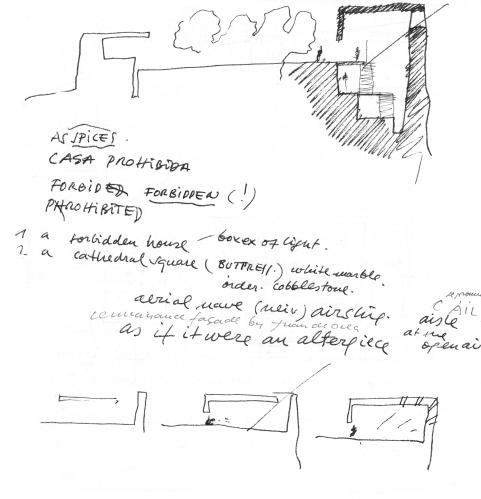 AS SPICES.
CASA PROHIBIDA
FORBIDED FORBIDDEN (!)
PROHIBITED
1 a forbidden house – boxes of light.
2. a cathedral square (BUTTRESS.) white marble.
order. cobblestone.
aerial nave (neiv) airship.
renaissance façade by
as if it were an alterpiece
aisle
at the
open air